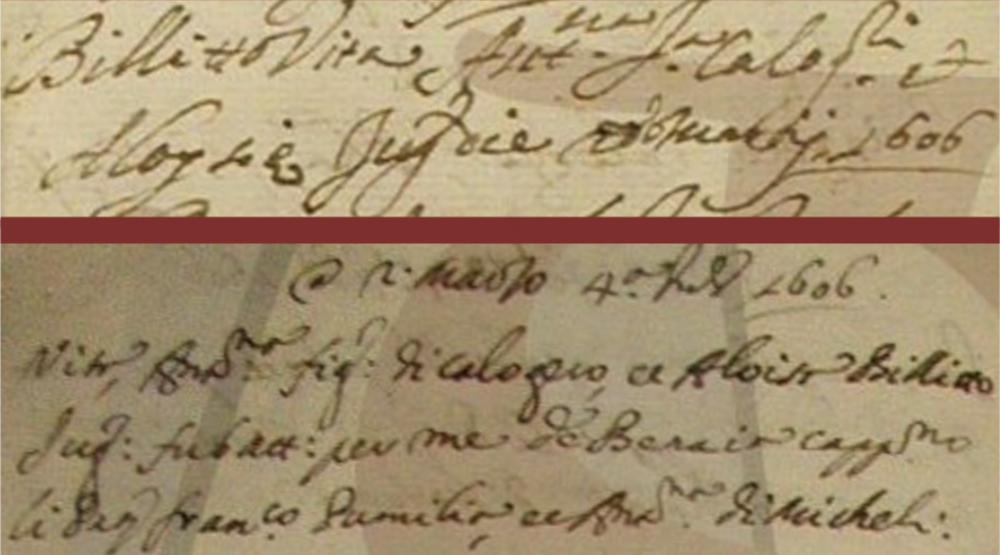 Billitto Vita Ant.na f.a Calog.ri et
Aloysie Jug. die martij 1606
a 2 marzo 4.e Ind. 1606.
Vita, Ant.na fig: di calogero, et Aloisa Billitto
Jug: fu batt: per me de Beraio capp.no
li Pag franc.o Dumilia, et Ant.na di Micheli: